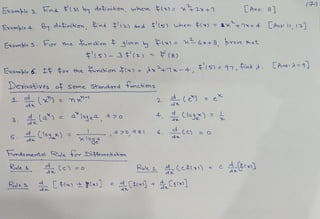 (7)
Example 3. Find f'(3) by definition, where f(x) = x²+2x+7 [Ans. 8]
Example 4. By definition, find f'(2) and f'(5) when f(x) = x²+7x+4 [Ans 11, 17]
Example 5. For the function f given by f(x) = x²-6x+8, prove that
f'(5) - 3f'(2) = f'(8)
Example 6. If for the function f(x) = λx²+7x-4, f'(5) = 97, find λ. [Ans λ=9]
Derivatives of some standard functions
1. d/dx (xⁿ) = nxⁿ⁻¹ 2. d/dx (eˣ) = eˣ
3. d/dx (aˣ) = aˣ logₑa, a>0 4. d/dx (logₑx) = 1/x
5. d/dx (logₐx) = 1/(x logₑa), a>0, a≠1 6. d/dx (c) = 0
Fundamental Rule for Differentiation
Rule 1. d/dx (c) = 0 Rule 2. d/dx (c f(x)) = c d/dx [f(x)]
Rule 3. d/dx [f(x) ± g(x)] = d/dx [f(x)] ± d/dx [g(x)]